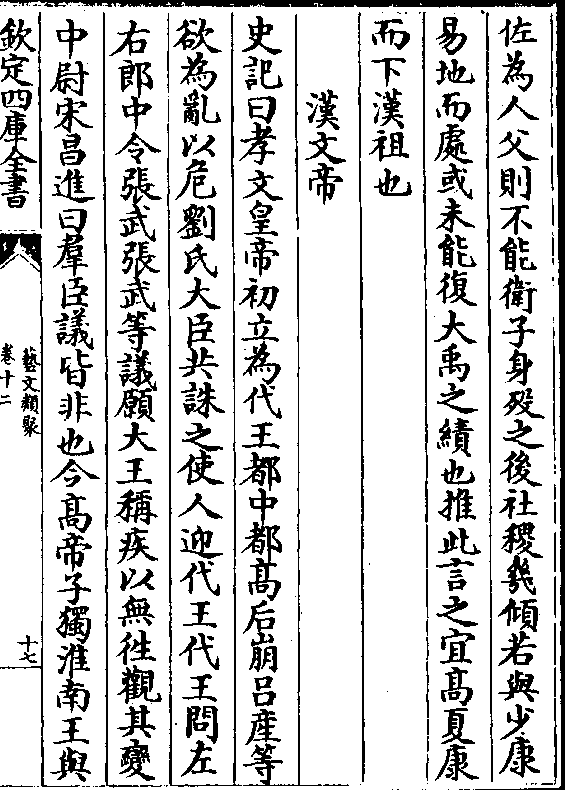 佐為人父則不能衛子身歿之後社稷幾傾若與少康
易地而處或未能復大禹之績也推此言之宜髙夏康
而下漢祖也
漢文帝
史記曰孝文皇帝初立為代王都中都髙后崩吕産等
欲為亂以危劉氏大臣共誅之使人迎代王代王問左
右郎中令張武張武等議願大王稱疾以無徃觀其變
中尉宋昌進曰羣臣議皆非也今髙帝子獨淮南王與
欽定四庫全書
藝文類聚
卷十二
十七